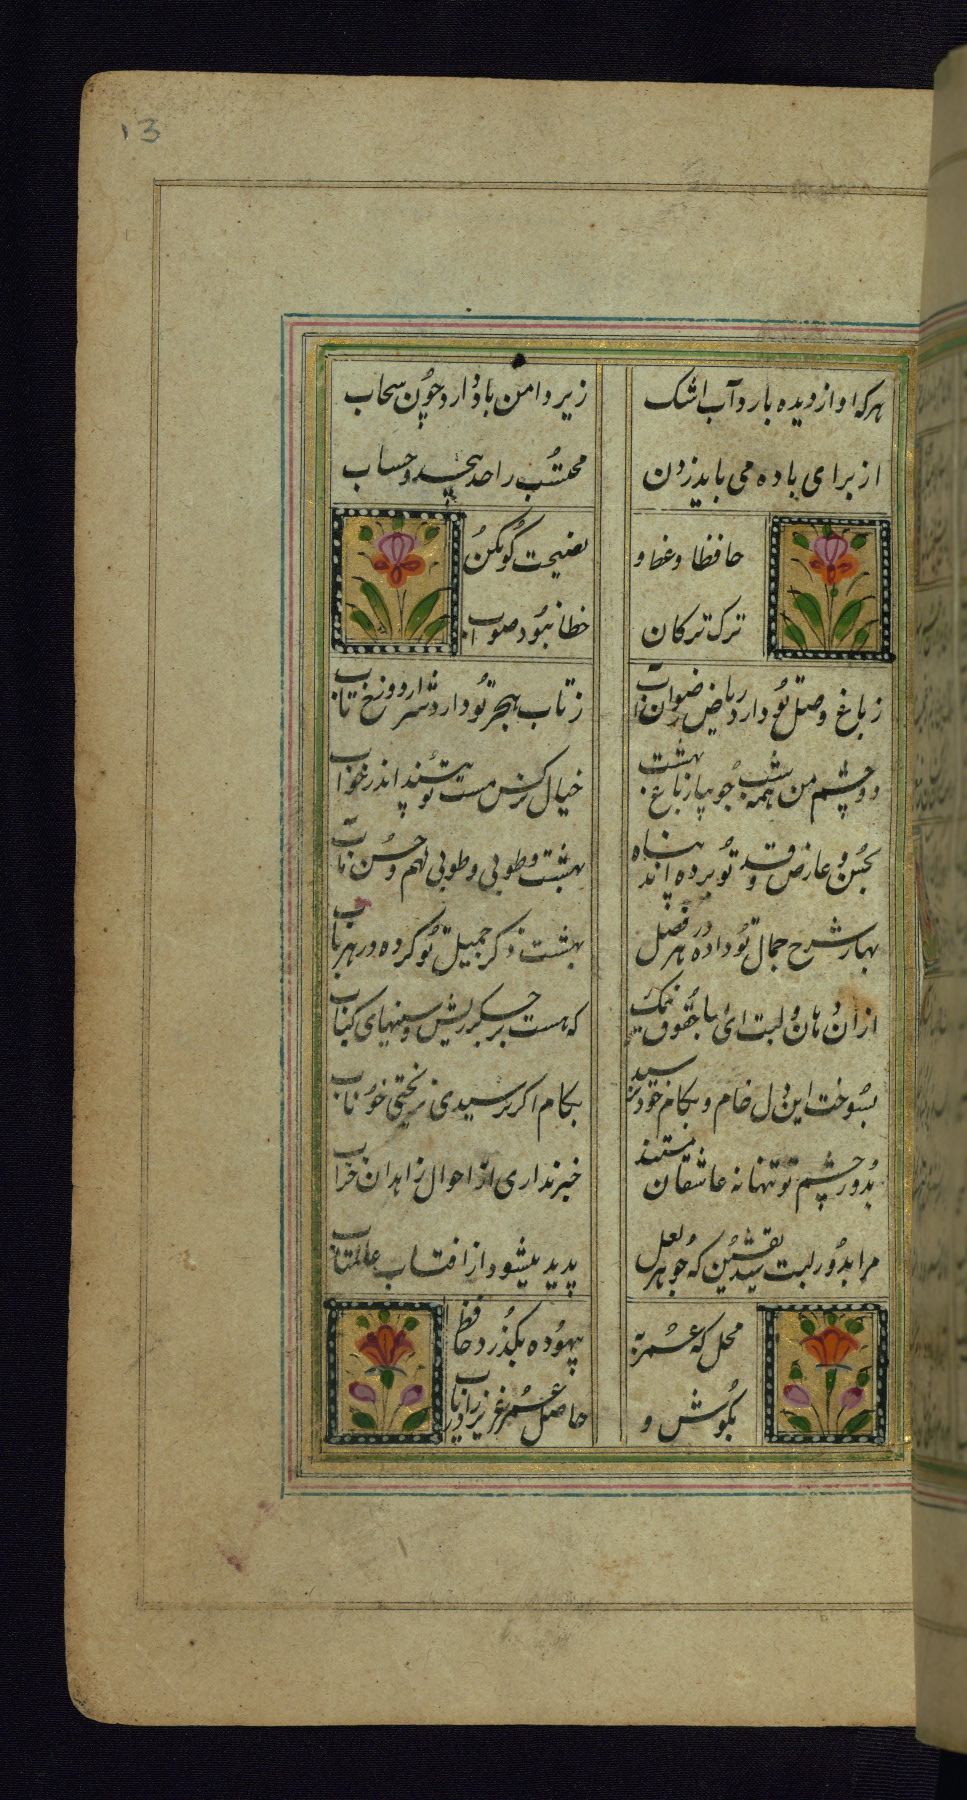 13
هرکه او از دیده بارد آب اشک
زیر دامن باد دارد چون سحاب
از برای باده می باید زدن
محتسب را حد بیحد و حساب
حافظا وعظ و
نصیحت گو مکن
ترک ترکان
خطا نبود صواب
ز باغ وصل تو دارد ریاض رضوان آب
ز تاب هجر تو دارد شرار دوزخ تاب
دو چشم من همه شب جویبار باغ بهشت
خیال نرگس مست تو بیند اندر خواب
بحسن و عارض و قد تو برده اند پناه
بهشت و طوبی و طوبی لهم و حسن مآب
بهار شرح جمال تو داده در هر فصل
بهشت ذکر جمیل تو کرده در هر باب
از آن دهان و لبت ای بسا حقوق نمک
که هست بر جگر ریش و سینهای کباب
بسوخت این دل خام و بکام خود نرسید
بکام اگر برسیدی نریختی خوناب
بدور چشم تو تنها نه عاشقان مستند
خبر نداری از احوال زاهدان خراب
مرا بدور لبت شد یقین که جوهر لعل
پدید میشود از افتاب عالمتاب
محل که عمر به
بیهوده بگذرد حافظ
بکوش و
حاصل عمر عزیز را دریاب